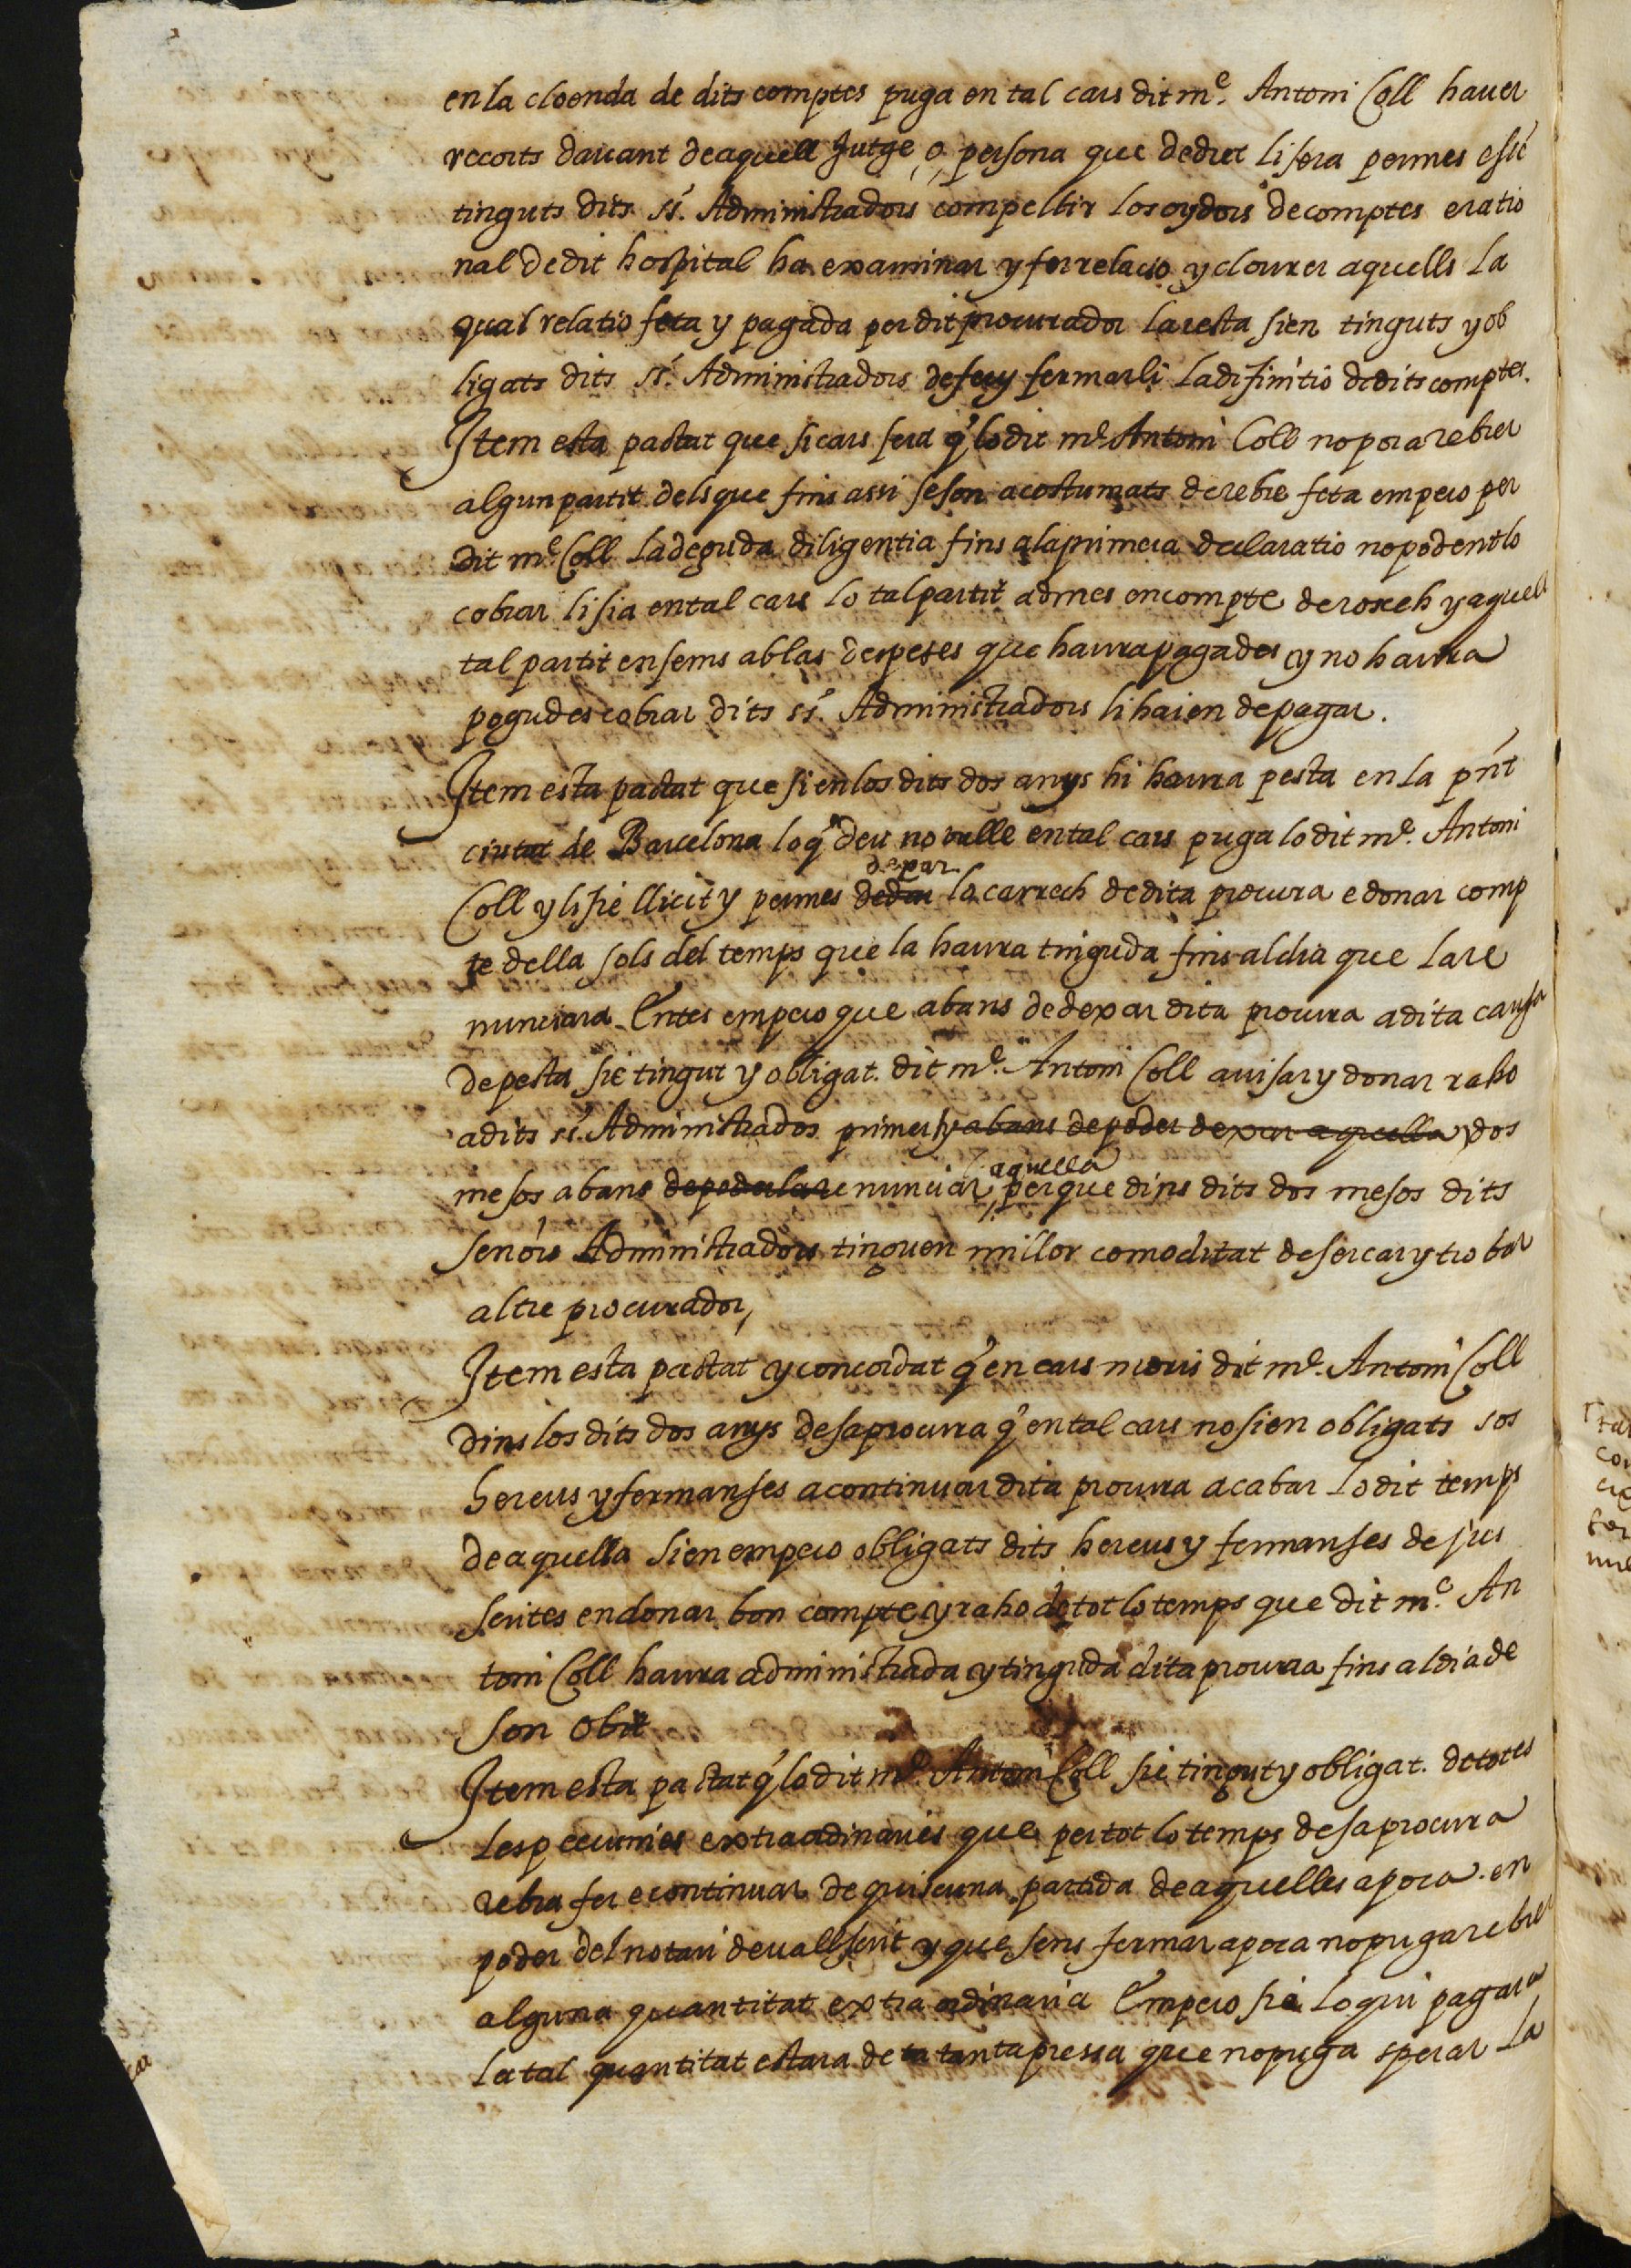 en la cloenda de dits comptes puga en tal cars dit mᵉ. Antoni Coll hauer
recorts dauant de aquell Jutge, o, persona que de dret li sera permes e sie
tinguts dits sˢ. Administradors compellir los oydors de comptes e ratio
nal de dit hospital ha examinar y fer relacio y clourer aquells la
qual relatio feta y pagada per dit procurador la resta sien tinguts y ob
ligats dits sˢ. Administradors de fer y fermarli la difinitio de dits comptes.
Item esta pactat que si cars sera q̃ lo dit mᵉ Antoni Coll no pora rebrer
algun partit dels que fins assi se son acostumats de rebre feta empero per
dit mᵉ Coll la deguda diligentia fins a la primera declaratio no podentlo
cobrar li sia en tal cars lo tal partit admes en compte de rosech y aquell
tal partit ensems ab las despeses que haura pagades y no haura
pogudes cobrar dits sˢ. Administradors li haien de pagar.
Item esta pactat que si en los dits dos anys hi haura pesta en la pñt
ciutat de Barcelona lo q̃ deu no vulle en tal cars puga lo dit mᵉ. Antoni
dexar
Coll y li sie llicit y permes lo carrech de dita procura e donar comp
te della sols del temps que la haura tinguda fins al dia que la re
nunciara. Entes empero que abans de dexar dita procura a dita causa
de pesta sie tingut y obligat. dit mᵉ. Antoni Coll auisar y donar raho
a dits sˢ. Administrados primer y abans de poder dexar aquella, dos
aquella
mesos abans de poder la renunciar, perque dins dits dos mesos dits
senors Administradors tinguen millor comoditat de sercar y trobar
altre procurador,
Item esta pactat y concordat q̃ en cars moris dit mᵉ. Antoni Coll
dins los dits dos anys de sa procura q̃ en tal cars no sien obligats sos
hereus y fermanses a continuar dita procura acabar lo dit temps
de aquella sien empero obligats dits hereus y fermanses de jus
scrites en donar bon compte y raho de tot lo temps que dit mᵉ. An
toni Coll haura administrada y tinguda dita procura fins al dia de
son obit
Item esta pactat q̃ lo dit mᵉ. Antoni Coll sie tingut y obligat. de totes
les pecunies extraordinaries que per tot lo temps de sa procura
rebra fer e continuar de quiscuna partida de aquelles apoca en
poder del notari deuall scrit y que sens fermar apoca no puga rebrer
alguna quantitat extraordinaria Empero si lo qui pagara
la tal quantitat estara de tanta pressa que no puga sperar la